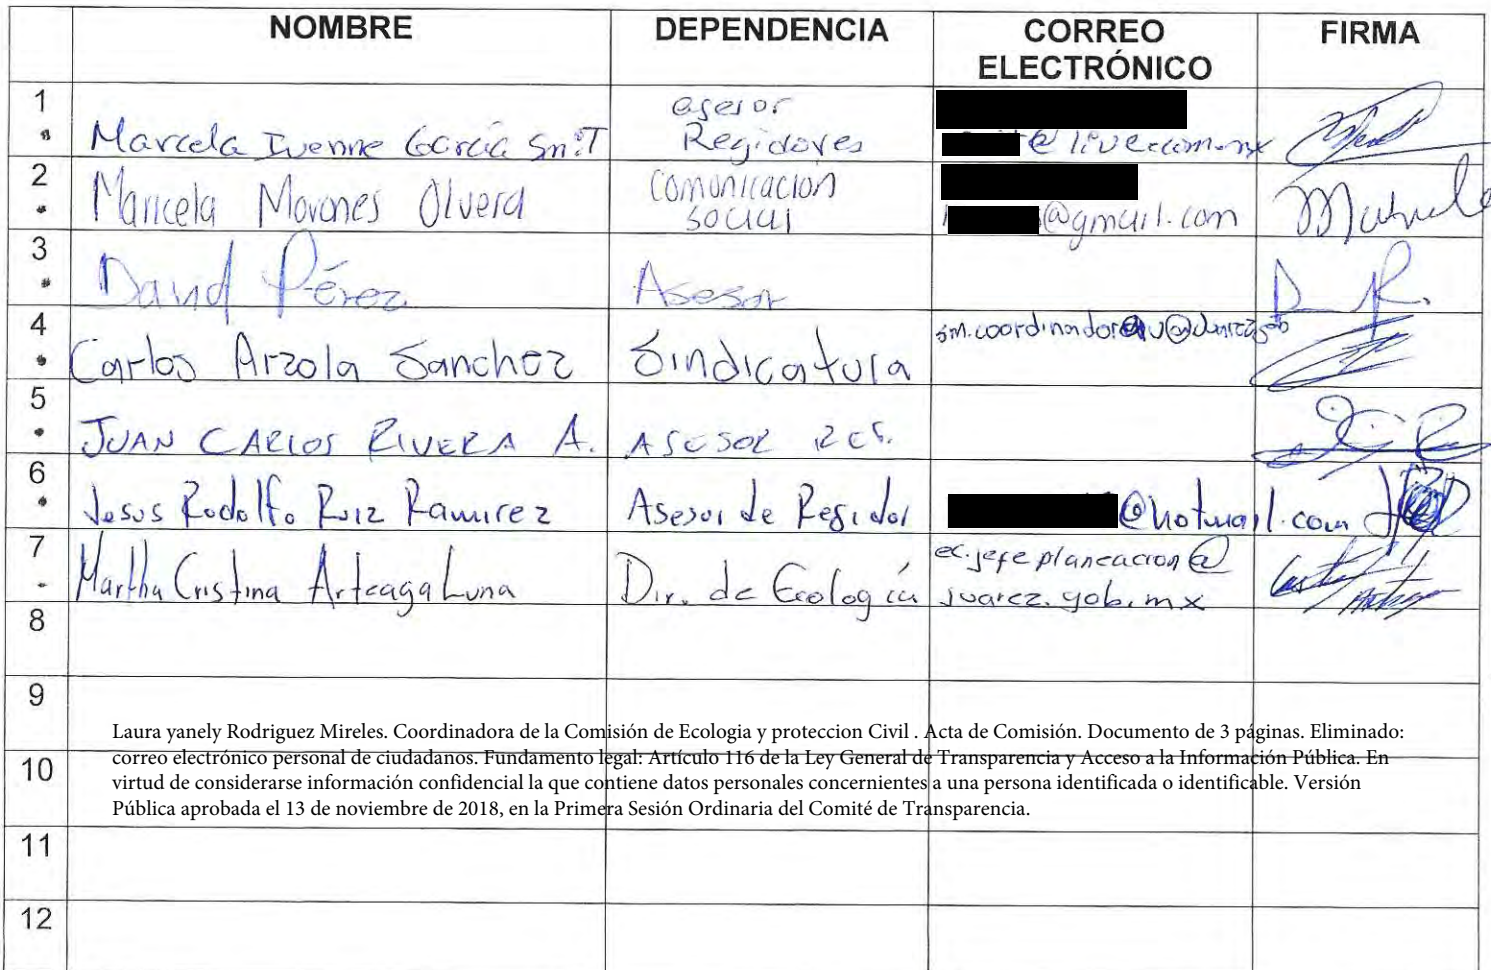 NOMBRE DEPENDENCIA CORREO ELECTRÓNICO FIRMA
1 Marcela Ivenne García Smit asesor Regidores @live.com.mx
2 Maricela Morones Olvera Comunicacion social @gmail.com
3 David Pérez Asesor
4 Carlos Arzola Sanchez Sindicatura
5 JUAN CARLOS RIVERA A. ASESOR
6 Jesus Rodolfo Ruiz Ramirez Asesor de Regidor @hotmail.com
7 Martha Cristina Arteaga Luna Dir. de Ecología ec.jefeplaneacion@
juarez.gob.mx
8
9
Laura yanely Rodriguez Mireles. Coordinadora de la Comisión de Ecologia y proteccion Civil . Acta de Comisión. Documento de 3 páginas. Eliminado:
correo electrónico personal de ciudadanos. Fundamento legal: Artículo 116 de la Ley General de Transparencia y Acceso a la Información Pública. En
10
virtud de considerarse información confidencial la que contiene datos personales concernientes a una persona identificada o identificable. Versión
Pública aprobada el 13 de noviembre de 2018, en la Primera Sesión Ordinaria del Comité de Transparencia.
11
12